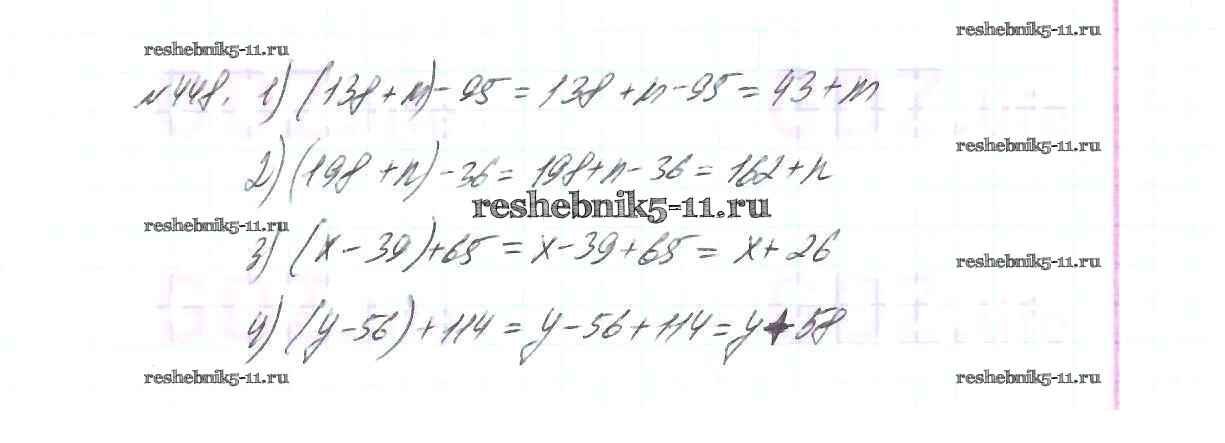 reshebnik5-11.ru
reshebnik5-11.ru
№448. 1) (138 + m) - 95 = 138 + m - 95 = 43 + m
reshebnik5-11.ru
2) (198 + n) - 36 = 198 + n - 36 = 162 + n
reshebnik5-11.ru
reshebnik5-11.ru
3) (x - 39) + 65 = x - 39 + 65 = x + 26
reshebnik5-11.ru
4) (y - 56) + 114 = y - 56 + 114 = y + 58
reshebnik5-11.ru
reshebnik5-11.ru